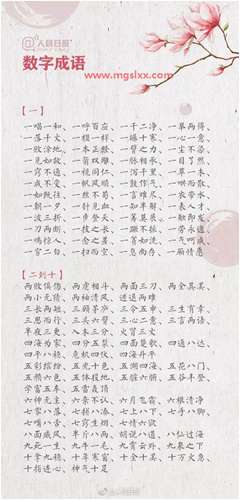 @人民日报
数字成语
www.mgslxx.com
【一】
一唱一和、一呼百应、一干二净、一举两得、
一落千丈、一模一样、一曝十寒、一心一意、
一败涂地、一本正经、一臂之力、一尘不染、
一见如故、一箭双雕、一脉相承、一目了然、
一窍不通、一视同仁、一泻千里、一草一木、
一成不变、一帆风顺、一鼓作气、一哄而散、
一如既往、一丝不苟、一言难尽、一衣带水、
一朝一夕、一针见血、一知半解、一表人才、
一波三折、一步登天、一筹莫展、一触即发、
一刀两断、一技之长、一蹶不振、一劳永逸、
一鸣惊人、一念之差、一贫如洗、一气呵成、
一穷二白、一扫而空、一息尚存、一厢情愿
【二到十】
两败俱伤、两面三刀、两全其美、
两小无猜、两袖清风、进退两难
三长两短、三顾茅庐、三令五申、三生有幸、
三思而行、三头六臂、三心二意、三言两语、
半夜三更、入木三分、火冒三丈
四海为家、四分五裂、四面楚歌、四通八达、
四平八稳、危机四伏、四海升平
五彩缤纷、五光十色、五湖四海、五花八门、
五颜六色、五体投地、五脏六腑、五谷丰登、
学富五车、五雷轰顶
六神无主、六亲不认、六月飞霜、六根清净
七零八落、七拼八凑、七上八下、七手八脚、
七嘴八舌、七窍生烟、七情六欲
八面威风、半斤八两、胡说八道、八仙过海
九死一生、九牛一毛、九霄云外、九泉之下
十拿九稳、十年寒窗、十全十美、十万火急、
十指连心、神气十足